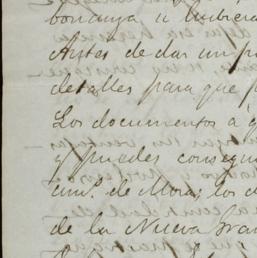 bonanza u hubiera
Antes de dar un pa
detalles para que p
Los documentos á q
y puedes consegui
cimº. de Mora; los d
de la Nueva Gra